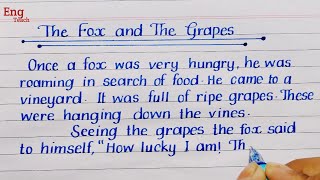 Eng
Teach
The Fox and The Grapes
Once a fox was very hungry, he was
roaming in search of food. He came to a
vineyard. It was full of ripe grapes. These
were hanging down the vines.
Seeing the grapes the fox said
to himself, "How lucky I am! Th